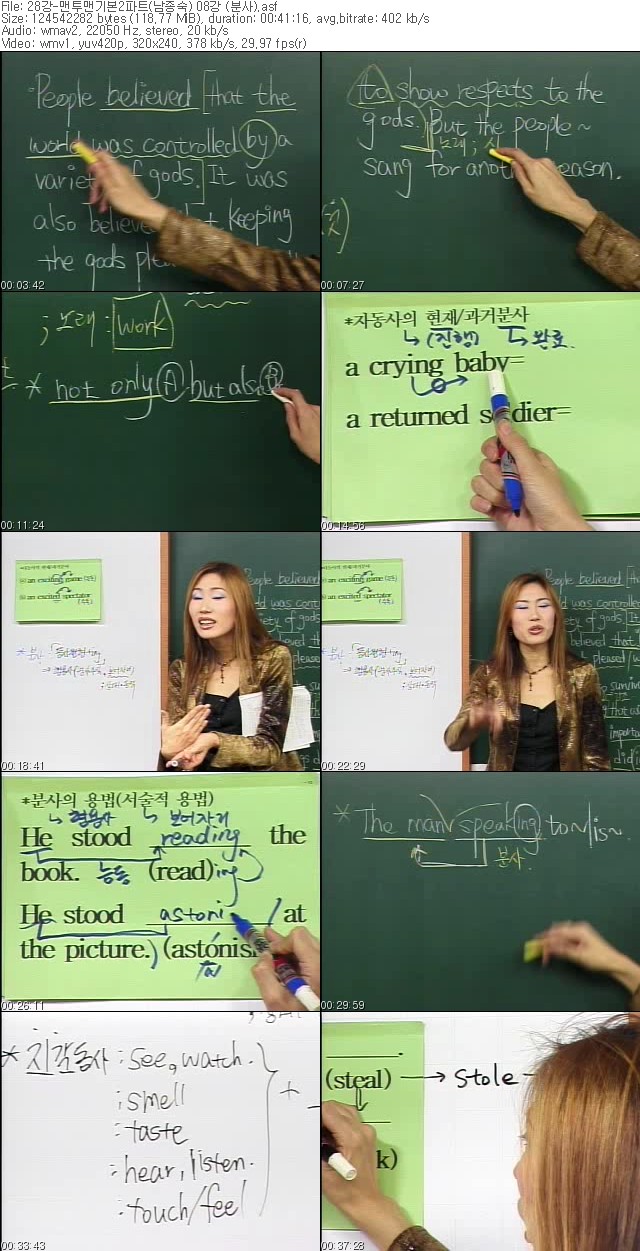 File: 28강-맨투맨기본2파트(남종숙) 08강 (분사).asf
Size: 124542282 bytes (118,77 MiB), duration: 00:41:16, avg,bitrate: 402 kb/s
Audio: wmav2, 22050 Hz, stereo, 20 kb/s
Video: wmv1, yuv420p, 320x240, 378 kb/s, 29,97 fps(r)
People believed [that the
world was controlled by a
variety of gods.] It was
also believed keeping
the gods
00:03:42
to show respects to the
gods. But the people ~
노래 ; 시
sang for another reason.
00:07:27
; 노래 : work
* not only Ⓐ but also Ⓑ
00:11:24
*자동사의 현재/과거분사
↳ (진행) ↳ 완료
a crying baby=
a returned soldier=
00:14:56
an exciting game
an excited spectator
People believed
world was controlled
00:18:41
an exciting game
an excited spectator
People believed [tha
ld was controlled
iety of gods.
believed that
pleased
00:22:29
*분사의 용법(서술적 용법)
↳ 형용사 ↳ 보어자리
He stood reading the
book. 능동 (read)ing
He stood astoni / at
the picture.) (astonis
00:26:11
* The man speaking to ~ is ~
분사.
00:29:59
* 지각동사 : see, watch.
; smell
: taste
: hear, listen.
: touch/feel
+
00:33:43
(steal) → stole -
k)
00:37:28